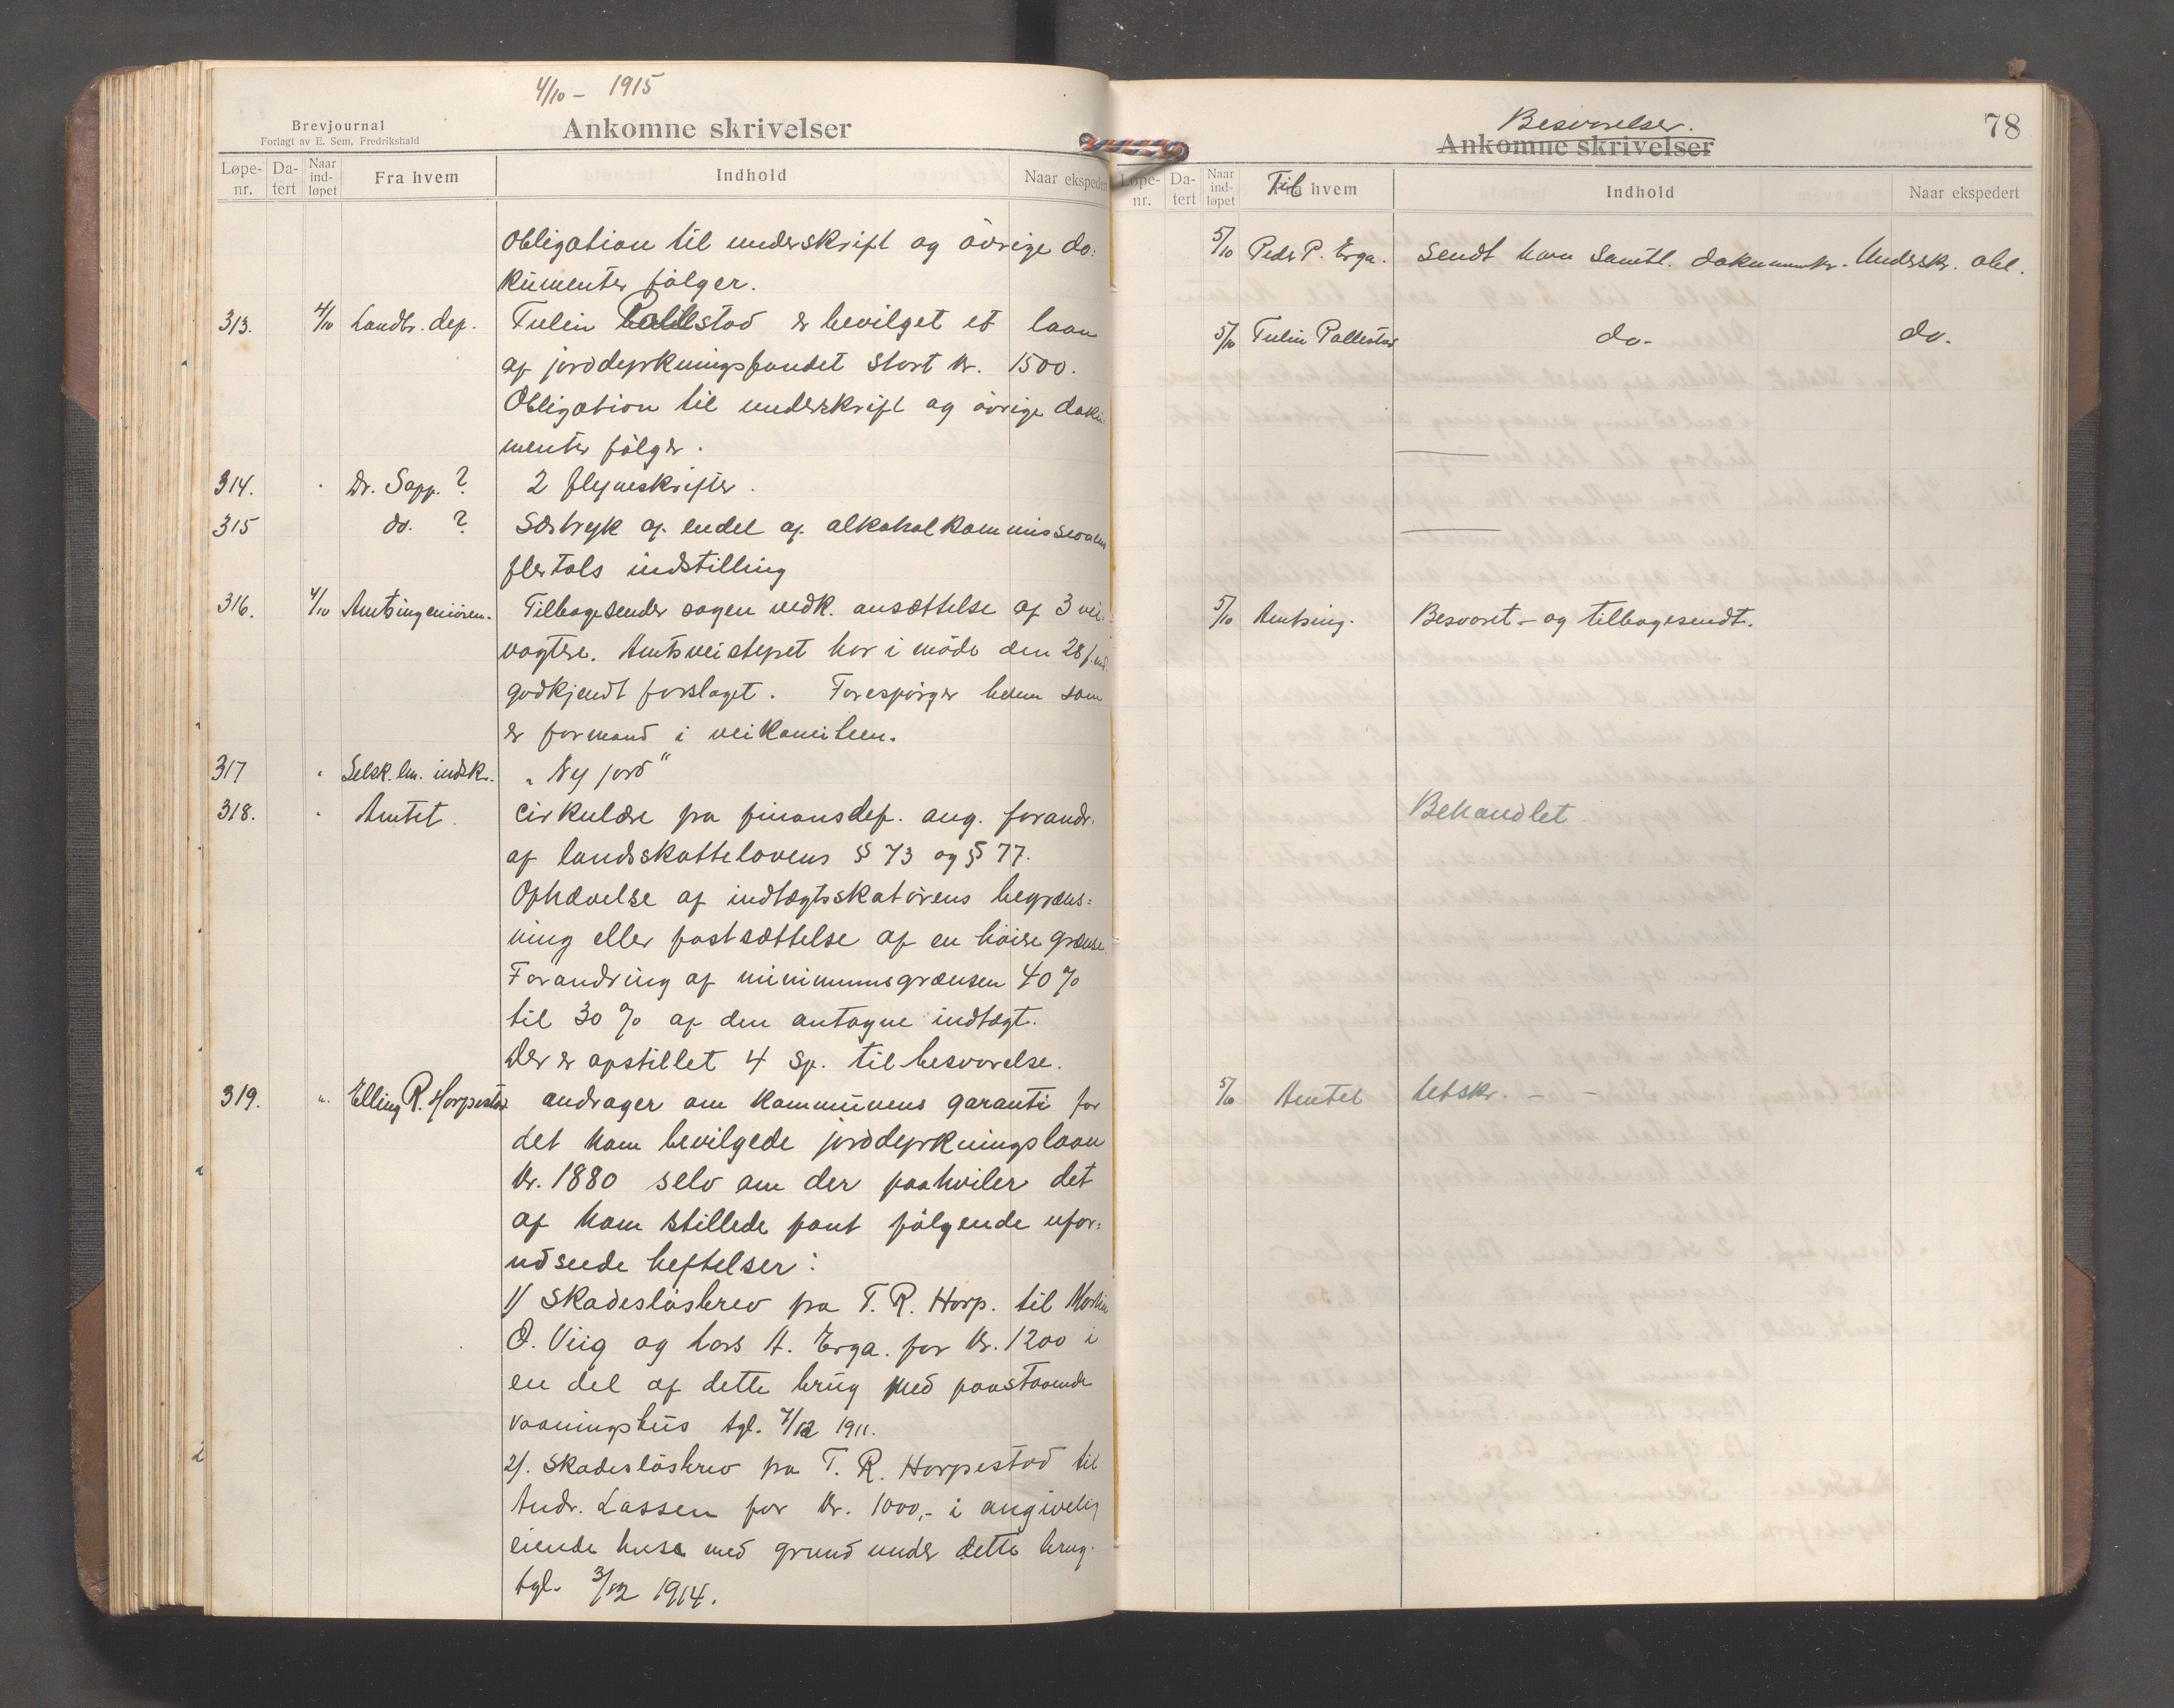 4/10 - 1915
Brevjournal
Forlagt av E. Sem, Fredrikshald
Ankomne skrivelser
Løpe-nr. Da-tert Naar ind-løpet Fra hvem Indhold Naar ekspedert
Obligation til underskrift og øvrige do:
kumenter følger.
313. 4/10 Landbr. dep. Tulin Pollestad er bevilget et laan
af jorddyrkningsfondet stort kr. 1500.
Obligation til underskrift og øvrige doku:
menter følger.
314. " Dr. Sopp. ? 2 flyveskrifter.
315 do. ? Særtryk af endel af alkoholkommissionens
flertals indstilling
316. 4/10 Amtsingeniøren. Tilbagesender sagen vedk. ansættelse af 3 vei:
vogtere. Amtsveistyret har i møde den 28 f. md.
godkjendt forslaget. Forespørger hvem som
er formand i veikomiteen.
317 " Selsk. em. indsk. "Ny jord"
318. " Amtet. Cirkulære fra finansdep. ang. forandr.
af landsskattelovens § 73 og § 77.
Ophævelse af indtægtsskatørens begræns=
ning eller fastsættelse af en høiere grænse.
Forandring af minimumsgrænsen 40 %
til 30 % af den antagne indtægt.
Der er opstillet 4 sp. til besvarelse.
319. " Elling R. Horpestad andrager om kommunens garanti for
det ham bevilgede jorddyrkningslaan
kr. 1880 selv om der paahviler det
af ham stillede pant følgende ufor:
udseede heftelser:
1/ Skadesløsbrev fra T. R. Horp. til Martin
O. Viig og Lars A. Erga. for kr. 1200 i
en del af dette brug med paastaaende
vaaningshus tgl. 7/12 1911.
2/. Skadesløsbrev fra T. R. Horpestad til
Andr. Lassen for kr. 1000,- i angivelig
eiende huse med grund under dette brug.
tgl. 3/12 1914.
Besvarelser.
Ankomne skrivelser
78
Løpe-nr. Da-tert Naar ind-løpet Til hvem Indhold Naar ekspedert
5/10 Peder P. Erga. Sendt ham samtl. dokumenter. Underskr. obl.
5/10 Tulin Pollestad do. do.
5/10 Amtsing. Besvaret - og tilbagesendt.
Behandlet.
5/10 Amtet Utskr. - -